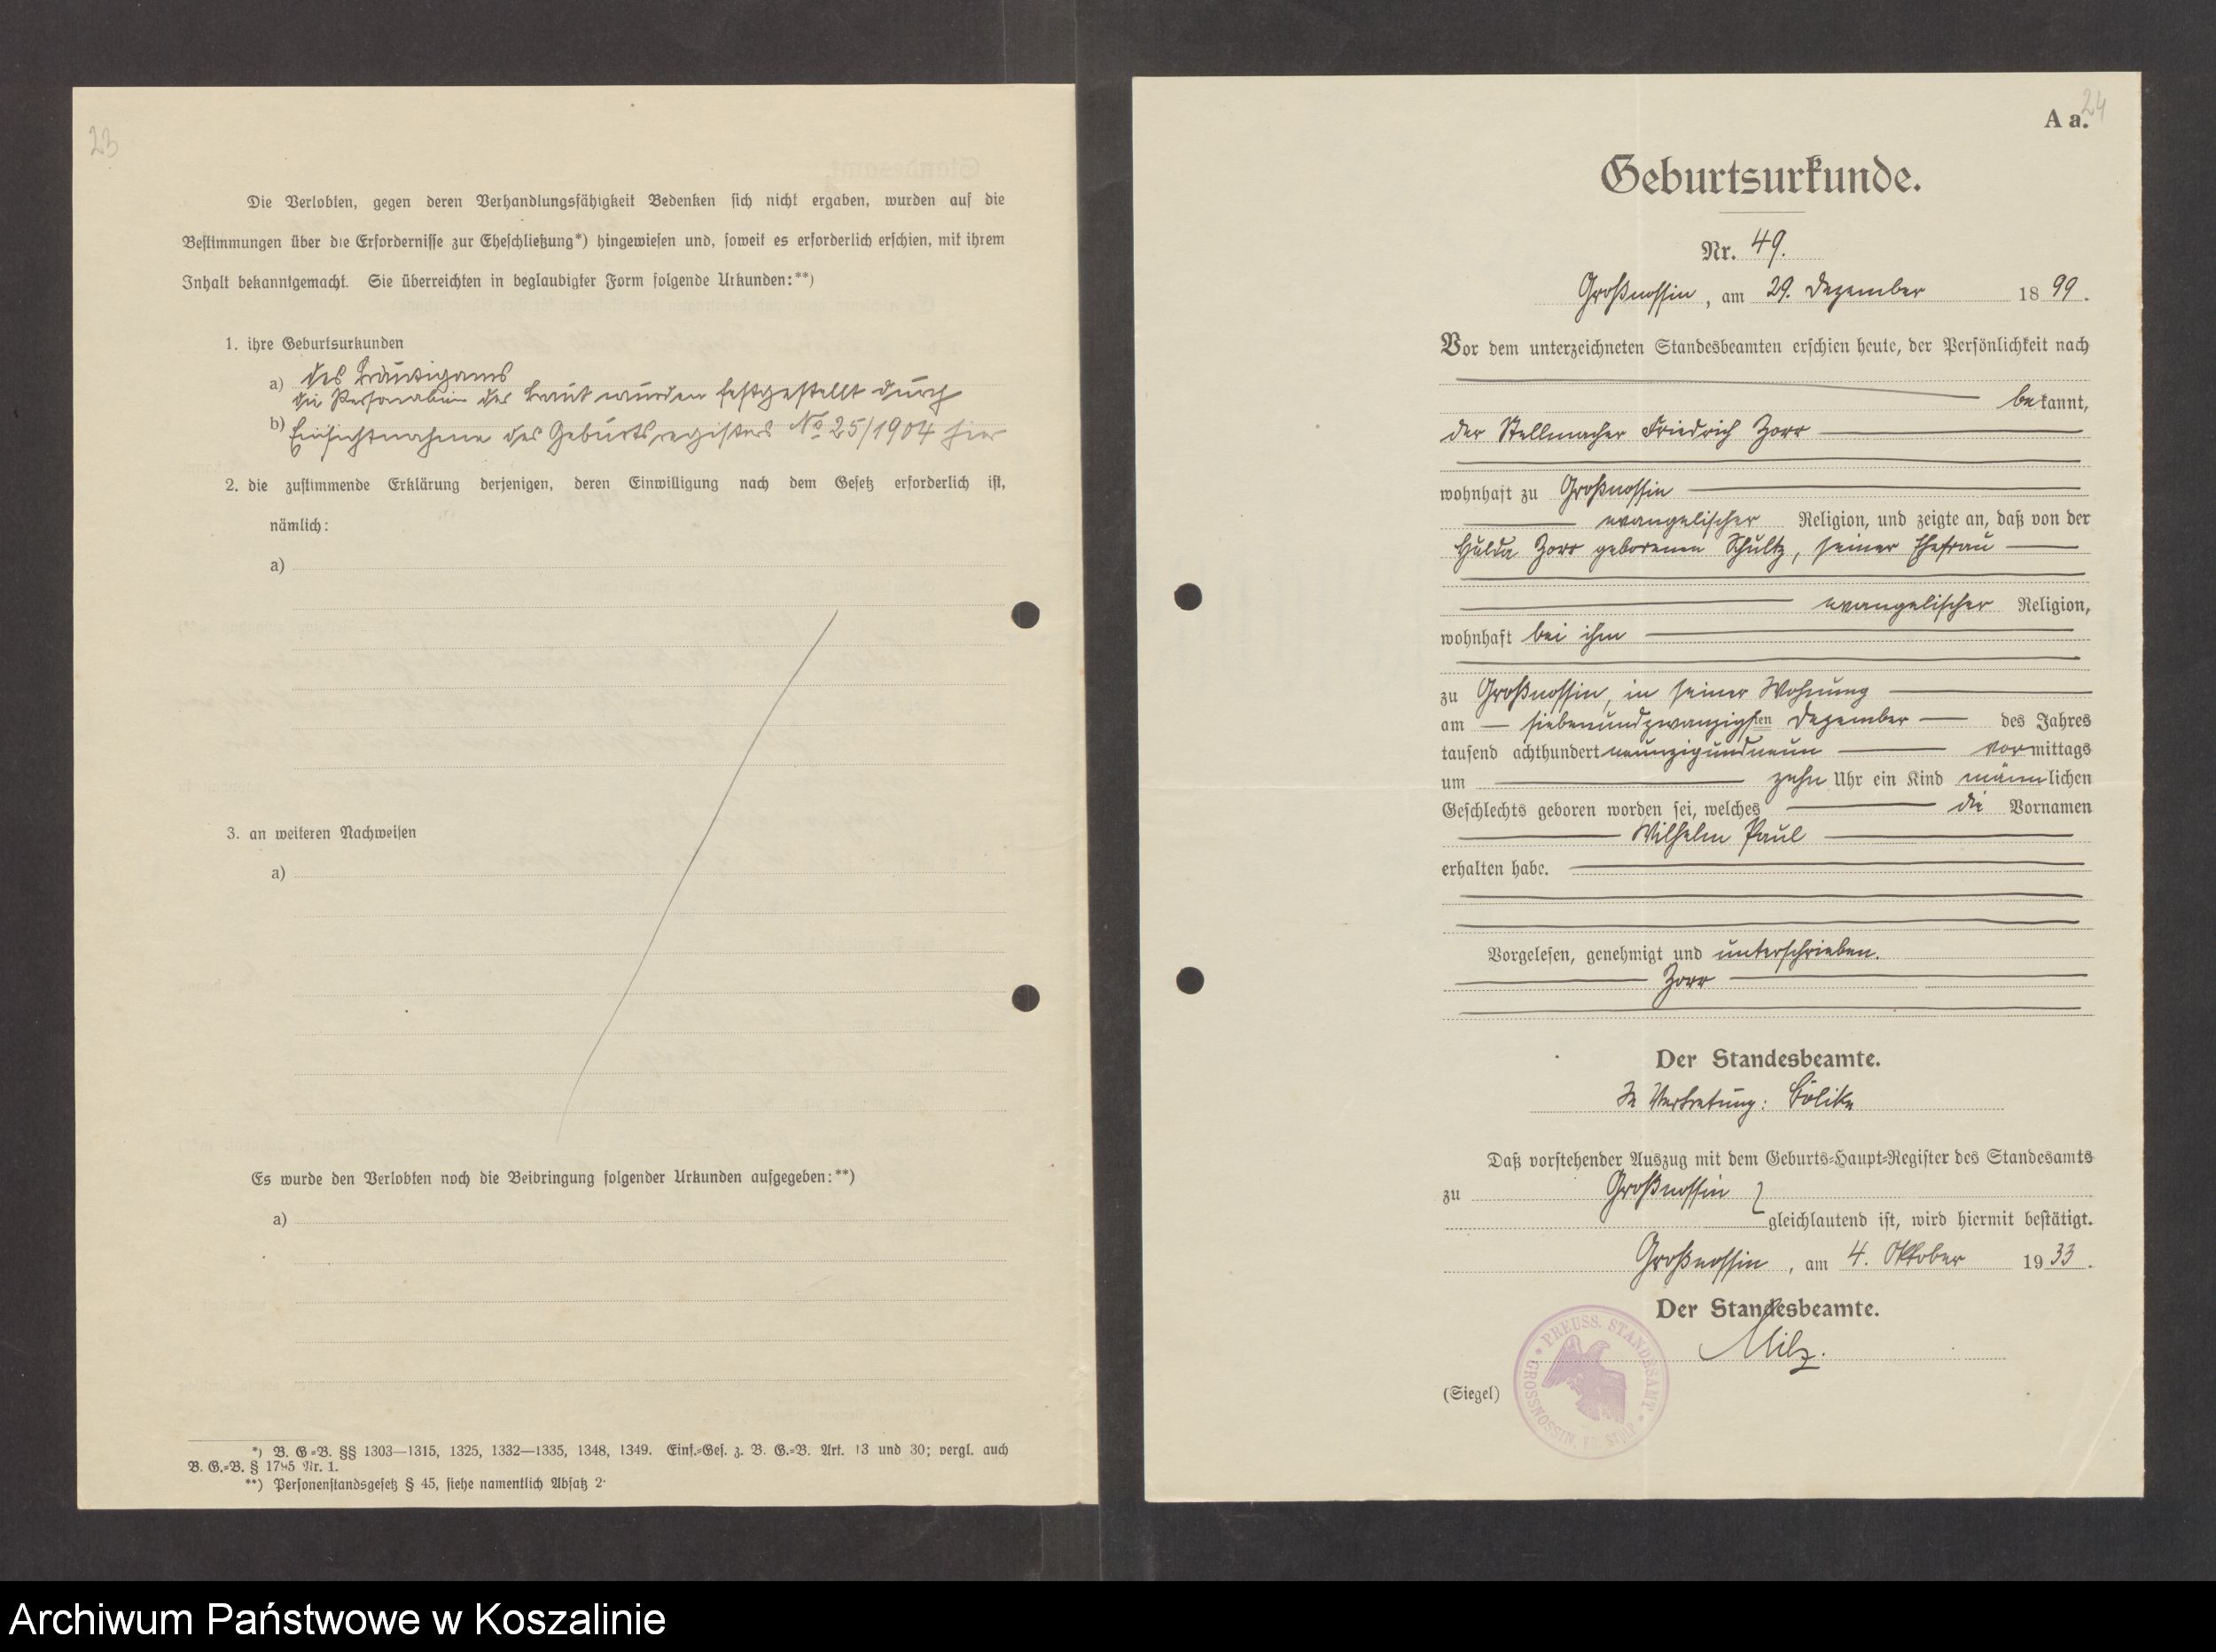 23
Die Verlobten, gegen deren Verhandlungsfähigkeit Bedenken sich nicht ergaben, wurden auf die
Bestimmungen über die Erfordernisse zur Eheschließung*) hingewiesen und, soweit es erforderlich erschien, mit ihrem
Inhalt bekanntgemacht. Sie überreichten in beglaubigter Form folgende Urkunden:**)
1. ihre Geburtsurkunden
a) des Bräutigams
die Personalien der Braut wurden festgestellt durch
b) Einsichtnahme des Geburtsregisters No 25/1904 hier
2. die zustimmende Erklärung derjenigen, deren Einwilligung nach dem Gesetz erforderlich ist,
nämlich:
a)
3. an weiteren Nachweisen
a)
Es wurde den Verlobten noch die Beibringung folgender Urkunden aufgegeben:**)
a)
*) B. G.=B. §§ 1303—1315, 1325, 1332—1335, 1348, 1349. Einf.=Ges. z. B. G.=B. Art. 13 und 30; vergl. auch
B. G.=B. § 1795 Nr. 1.
**) Personenstandsgesetz § 45, siehe namentlich Absatz 2.
24
A a.
Geburtsurkunde.
Nr. 49.
Großnossin, am 29. Dezember 1899.
Vor dem unterzeichneten Standesbeamten erschien heute, der Persönlichkeit nach
bekannt,
der Stellmacher Friedrich Zorr
wohnhaft zu Großnossin
evangelischer Religion, und zeigte an, daß von der
Hulda Zorr geborenen Schultz, seiner Ehefrau
evangelischer Religion,
wohnhaft bei ihm
zu Großnossin, in seiner Wohnung
am siebenundzwanzigsten Dezember des Jahres
tausend achthundert neunzigundneun vormittags
um zehn Uhr ein Kind männlichen
Geschlechts geboren worden sei, welches die Vornamen
Wilhelm Paul
erhalten habe.
Vorgelesen, genehmigt und unterschrieben.
Zorr
Der Standesbeamte.
In Vertretung: Bölike
Daß vorstehender Auszug mit dem Geburts=Haupt=Register des Standesamts
zu Großnossin
gleichlautend ist, wird hiermit bestätigt.
Großnossin, am 4. Oktober 1933.
Der Standesbeamte.
Milz.
(Siegel)
PREUSS. STANDESAMT * GROSSNOSSIN, STOLP *
Archiwum Państwowe w Koszalinie